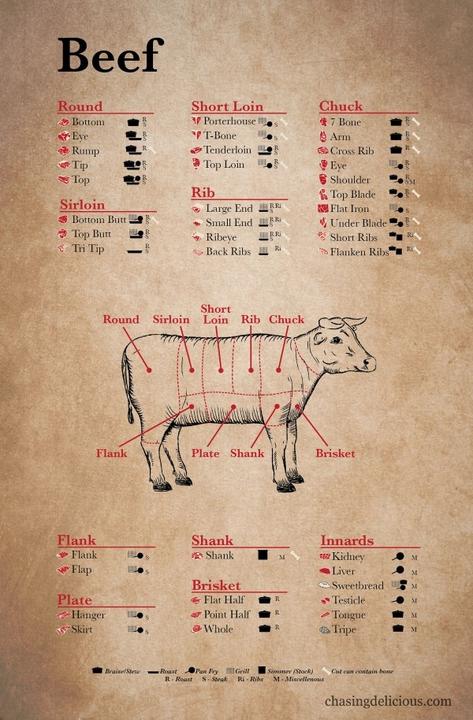 Beef
Round
Bottom R S
Eye R S
Rump R
Tip R S
Top R S
Sirloin
Bottom Butt R S
Top Butt R S
Tri Tip R S
Short Loin
Porterhouse S
T-Bone S
Tenderloin R S
Top Loin R S
Rib
Large End R Ri
Small End R Ri
Ribeye S
Back Ribs Ri
Chuck
7 Bone R
Arm R
Cross Rib R
Eye R S
Shoulder R SM
Top Blade R
Flat Iron S
Under Blade R S
Short Ribs Ri
Flanken Ribs Ri
Round
Sirloin
Short
Loin
Rib
Chuck
Flank
Plate
Shank
Brisket
Flank
Flank S
Flap S
Plate
Hanger S
Skirt S
Shank
Shank M
Brisket
Flat Half R
Point Half R
Whole R
Innards
Kidney M
Liver M
Sweetbread M
Testicle M
Tongue M
Tripe M
Braise/Stew Roast Pan Fry Grill Simmer (Stock) Cut can contain bone
R - Roast S - Steak Ri - Ribs M - Miscellenous
chasingdelicious.com